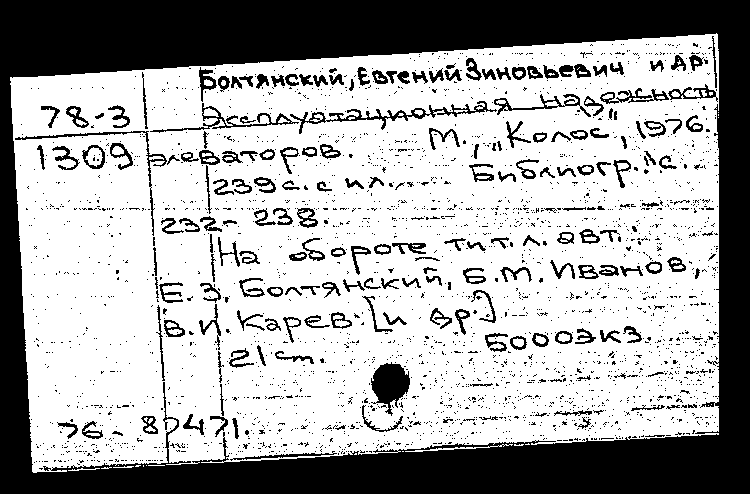 Болтянский, Евгений Зиновьевич и др.
78-3 Эксплуатационная надежность
1309 элеваторов. М., „Колос", 1976.
239 с. с ил. Библиогр.: с.
232-238.
На обороте тит. л. авт.:
Е. З. Болтянский, Б. М. Иванов,
В. И. Карев [и др.].
21 cm. 5000экз.
76-87471.